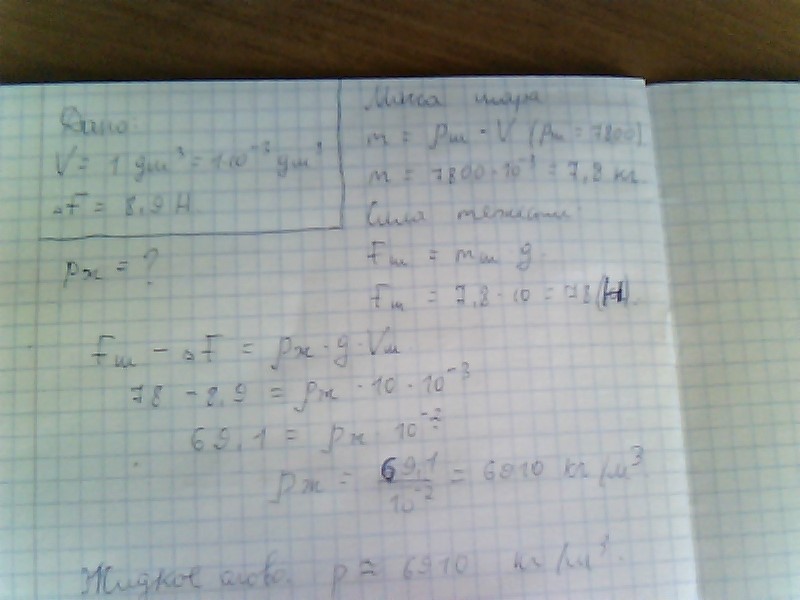 Дано:
V = 1 дм³ = 1·10⁻³ дм³
ΔF = 8,9 Н
ρж = ?
Масса шара
m = ρш · V (ρш = 7800)
m = 7800 · 10⁻³ = 7,8 кг
Сила тяжести:
Fш = mш g.
Fш = 7,8 · 10 = 78 (Н).
Fш - ΔF = ρж · g · Vш
78 - 8,9 = ρж · 10 · 10⁻³
69,1 = ρж · 10⁻²
ρж = 69,1 / 10⁻² = 6910 кг/м³
Жидкое олово. ρ = 6910 кг/м³.